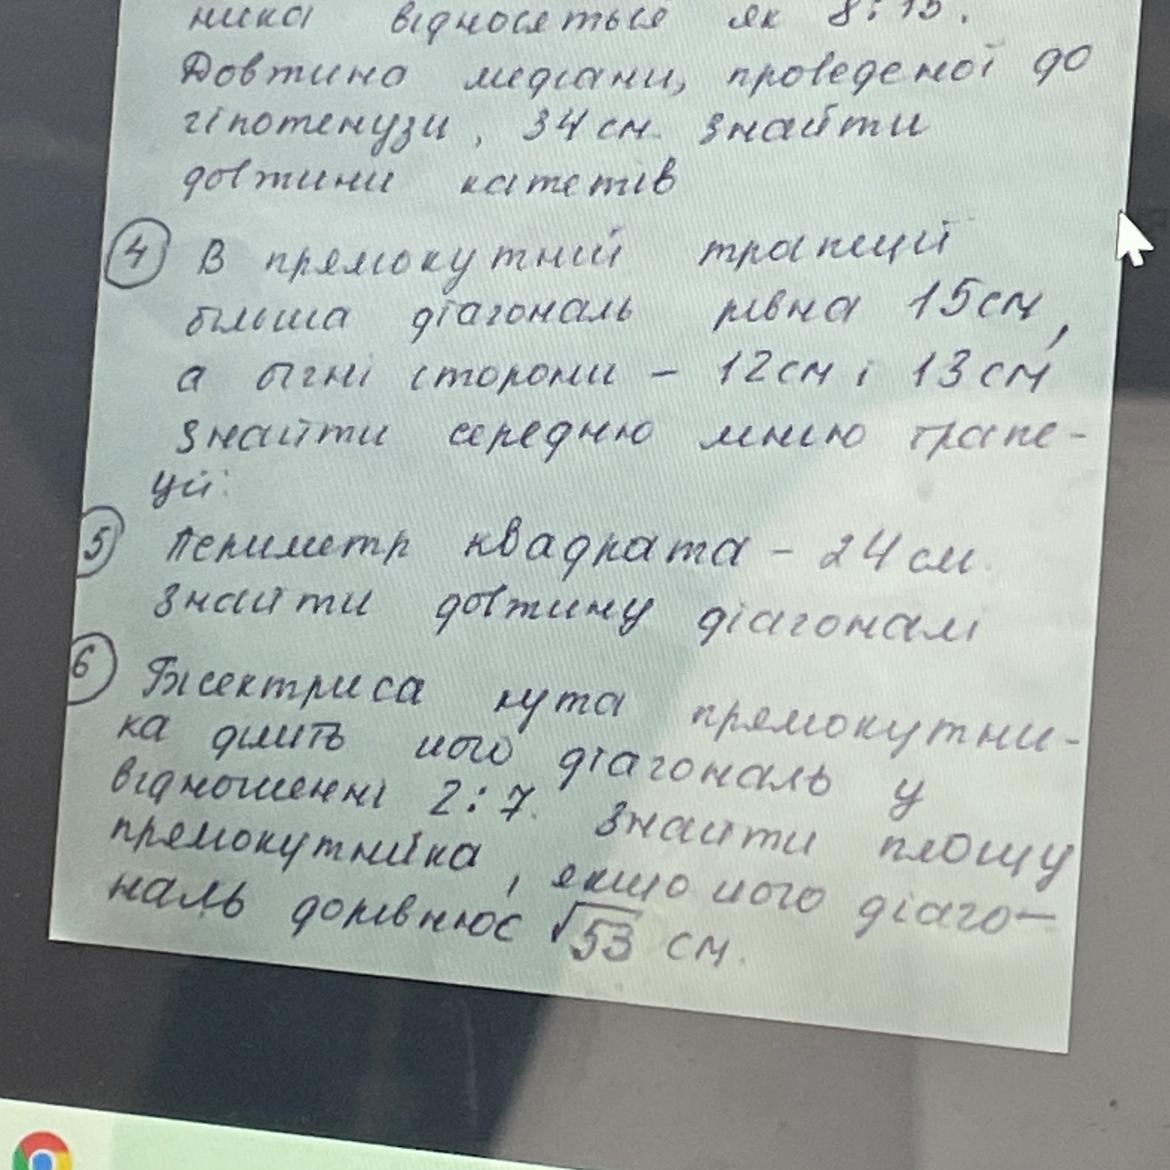 ника відноситься як 8:15.
Довжина медіани, проведеної до
гіпотенузи, 34 см. Знайти
довжини катетів
4 В прямокутній трапеції
більша діагональ рівна 15 см,
а бічні сторони - 12 см і 13 см
Знайти середню лінію трапе-
ції.
5 Периметр квадрата - 24 см.
Знайти довжину діагоналі
6 Бісектриса кута прямокутни-
ка ділить його діагональ у
відношенні 2:7. Знайти площу
прямокутника, якщо його діаго-
наль дорівнює √53 см.